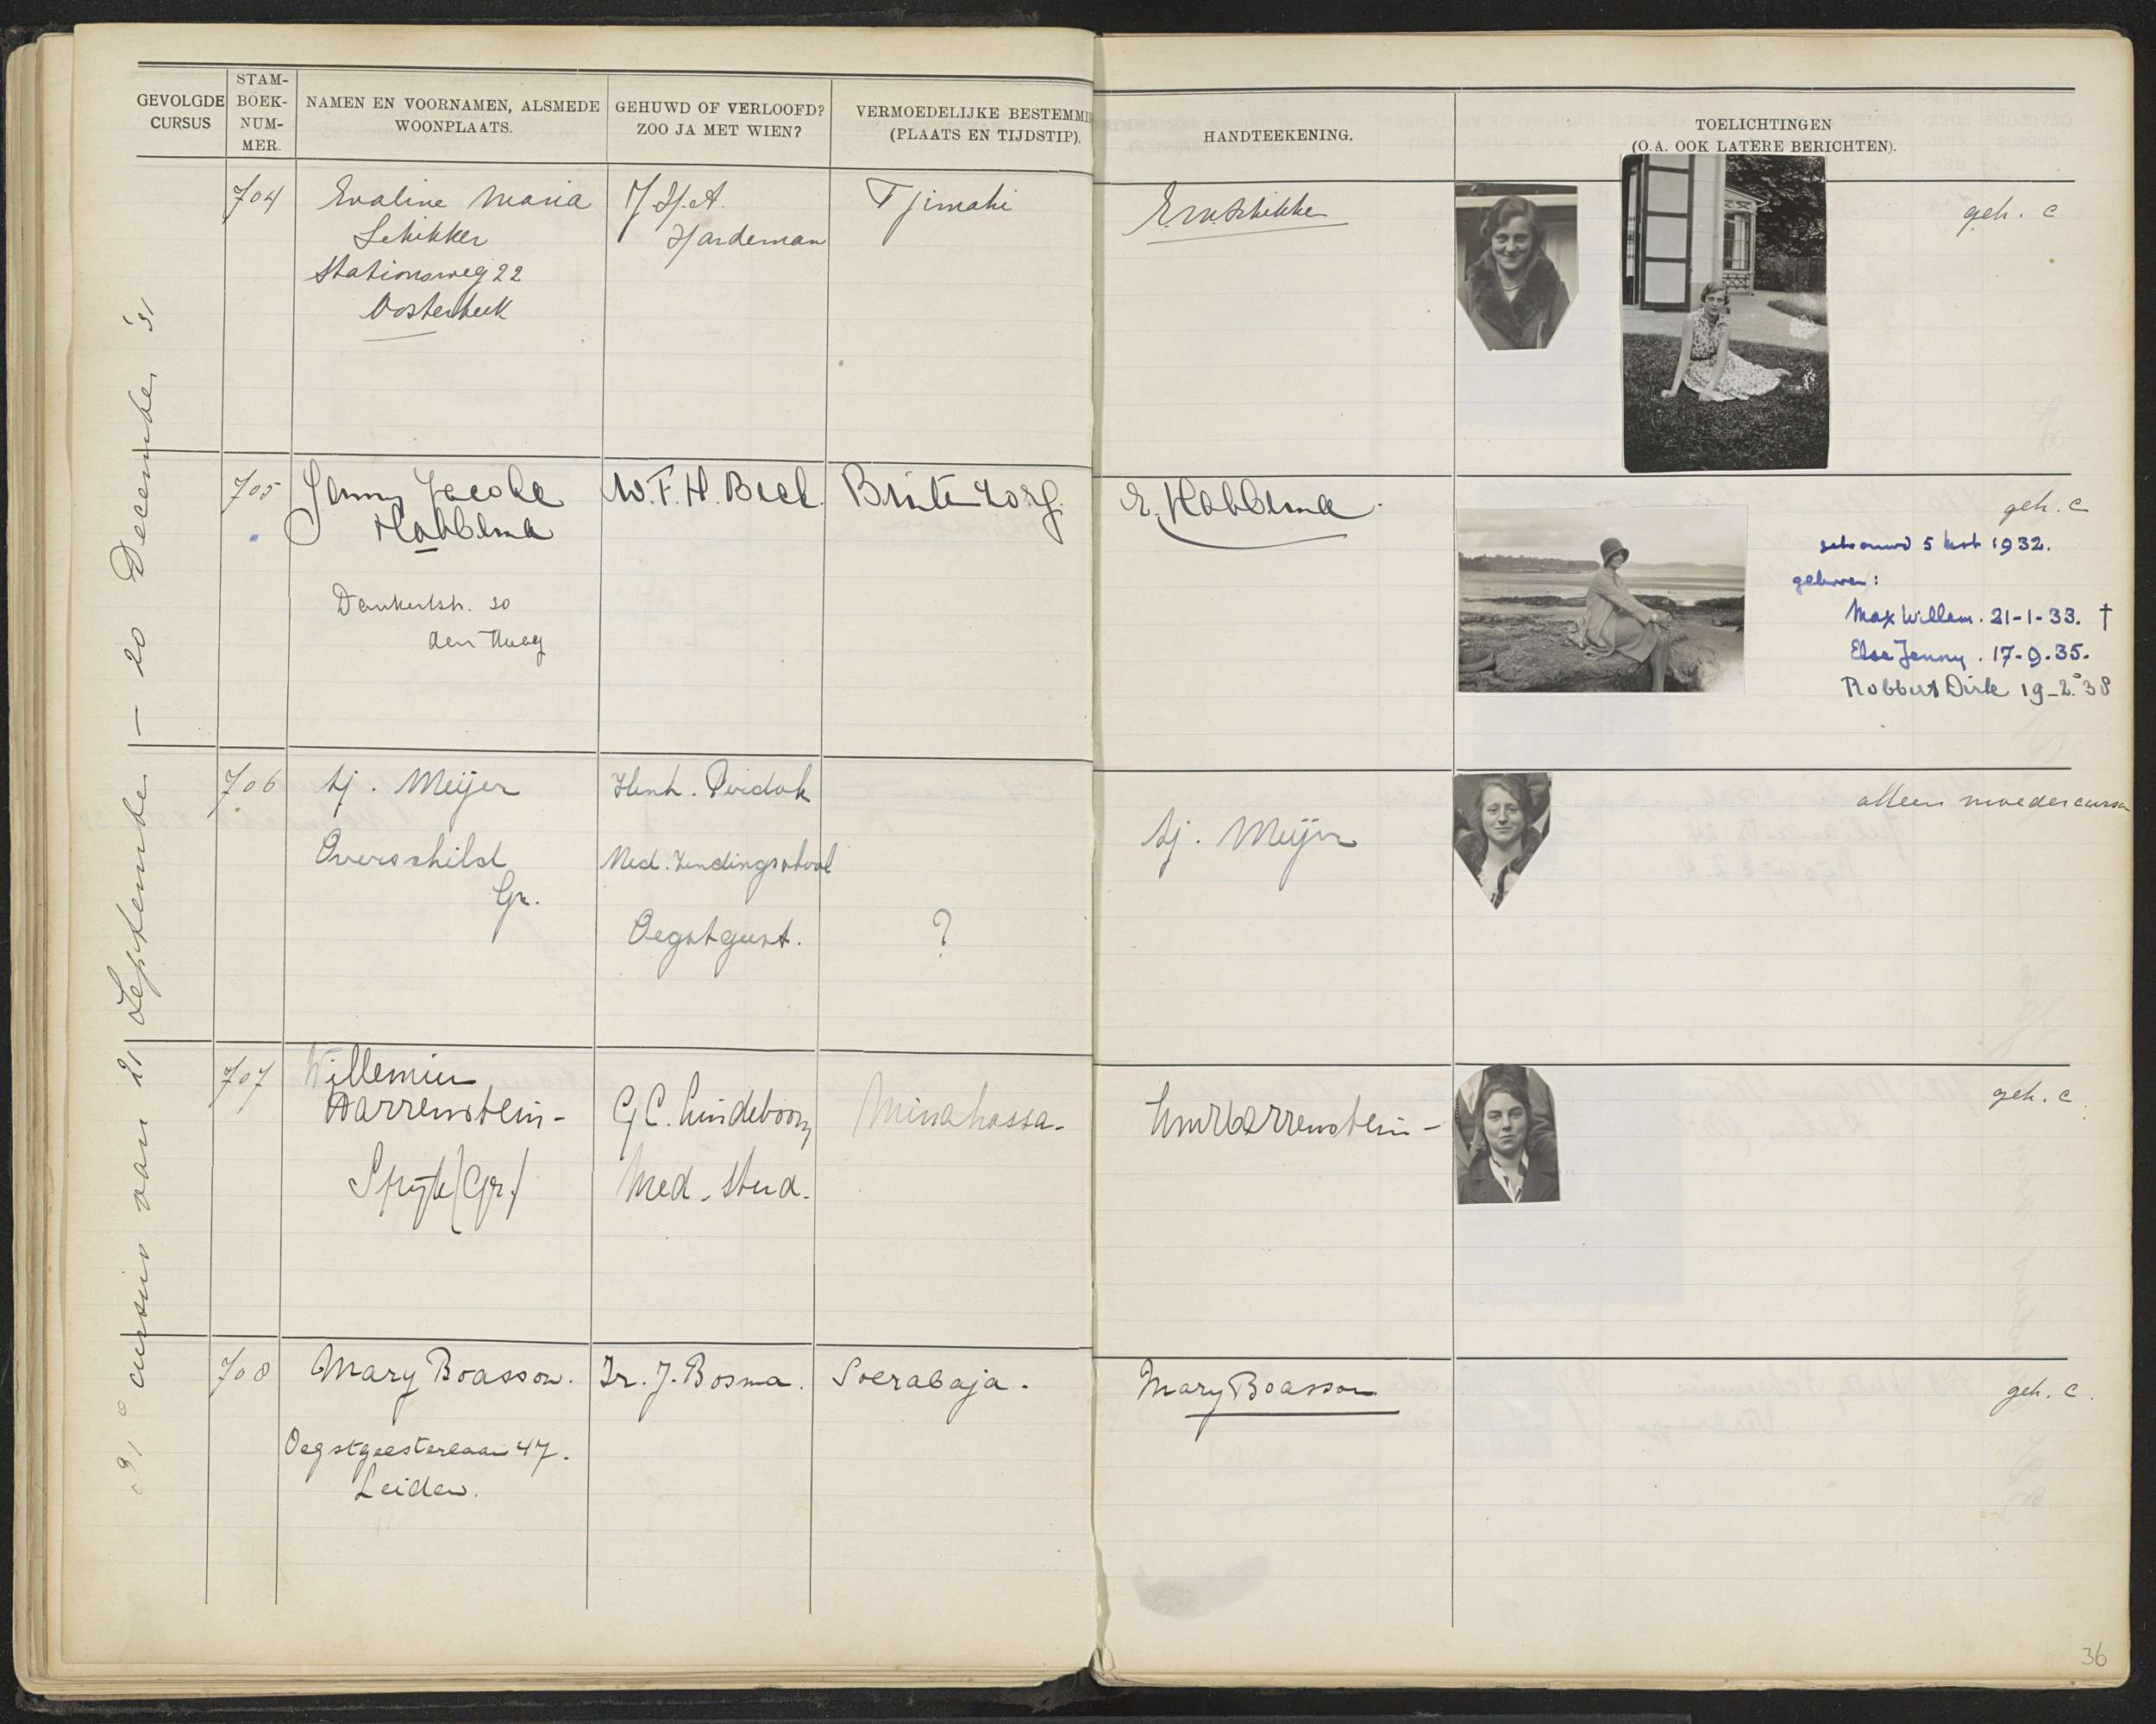 GEVOLGDE
CURSUS
STAM-
BOEK-
NUM-
MER.
NAMEN EN VOORNAMEN, ALSMEDE
WOONPLAATS.
GEHUWD OF VERLOOFD?
ZOO JA MET WIEN?
VERMOEDELIJKE BESTEMMI
(PLAATS EN TIJDSTIP).
HANDTEEKENING.
TOELICHTINGEN
(O.A. OOK LATERE BERICHTEN).
31e cursus van 21 September - 20 December '31
704
Evaline Maria
Schikker
Stationsweg 22
Oosterbeek
J. H. A.
Hardeman
Tjimahi
E.M. Schikker
geh. c
705
Jenny Jacoba
Hobbema
Dankertstr. 50
den Haag
W.F.H. Beek.
Buitenzorg.
E. Hobbema.
geh. c
getrouwd 5 1932.
geboren:
Max Willem. 21-1-33. †
Else Jenny. 17-9-35.
Robbert Dirk 19-2-38
706
Aj. Meijer
Overschild
Gr.
Henk. Pridok
Ned. Zendingsschool
Oegstgeest.
?
Aj. Meijer
alleen moedercursus
707
Willemien
Warrenstein-
Spijk (Gr.)
G.C. Lindeboom
Med. Stud.
Minahassa.
geh. c.
708
Mary Boasson.
Oegstgeesterlaan 47.
Leiden.
Ir. J. Bosma.
Soerabaja.
Mary Boasson
geh. c.
36